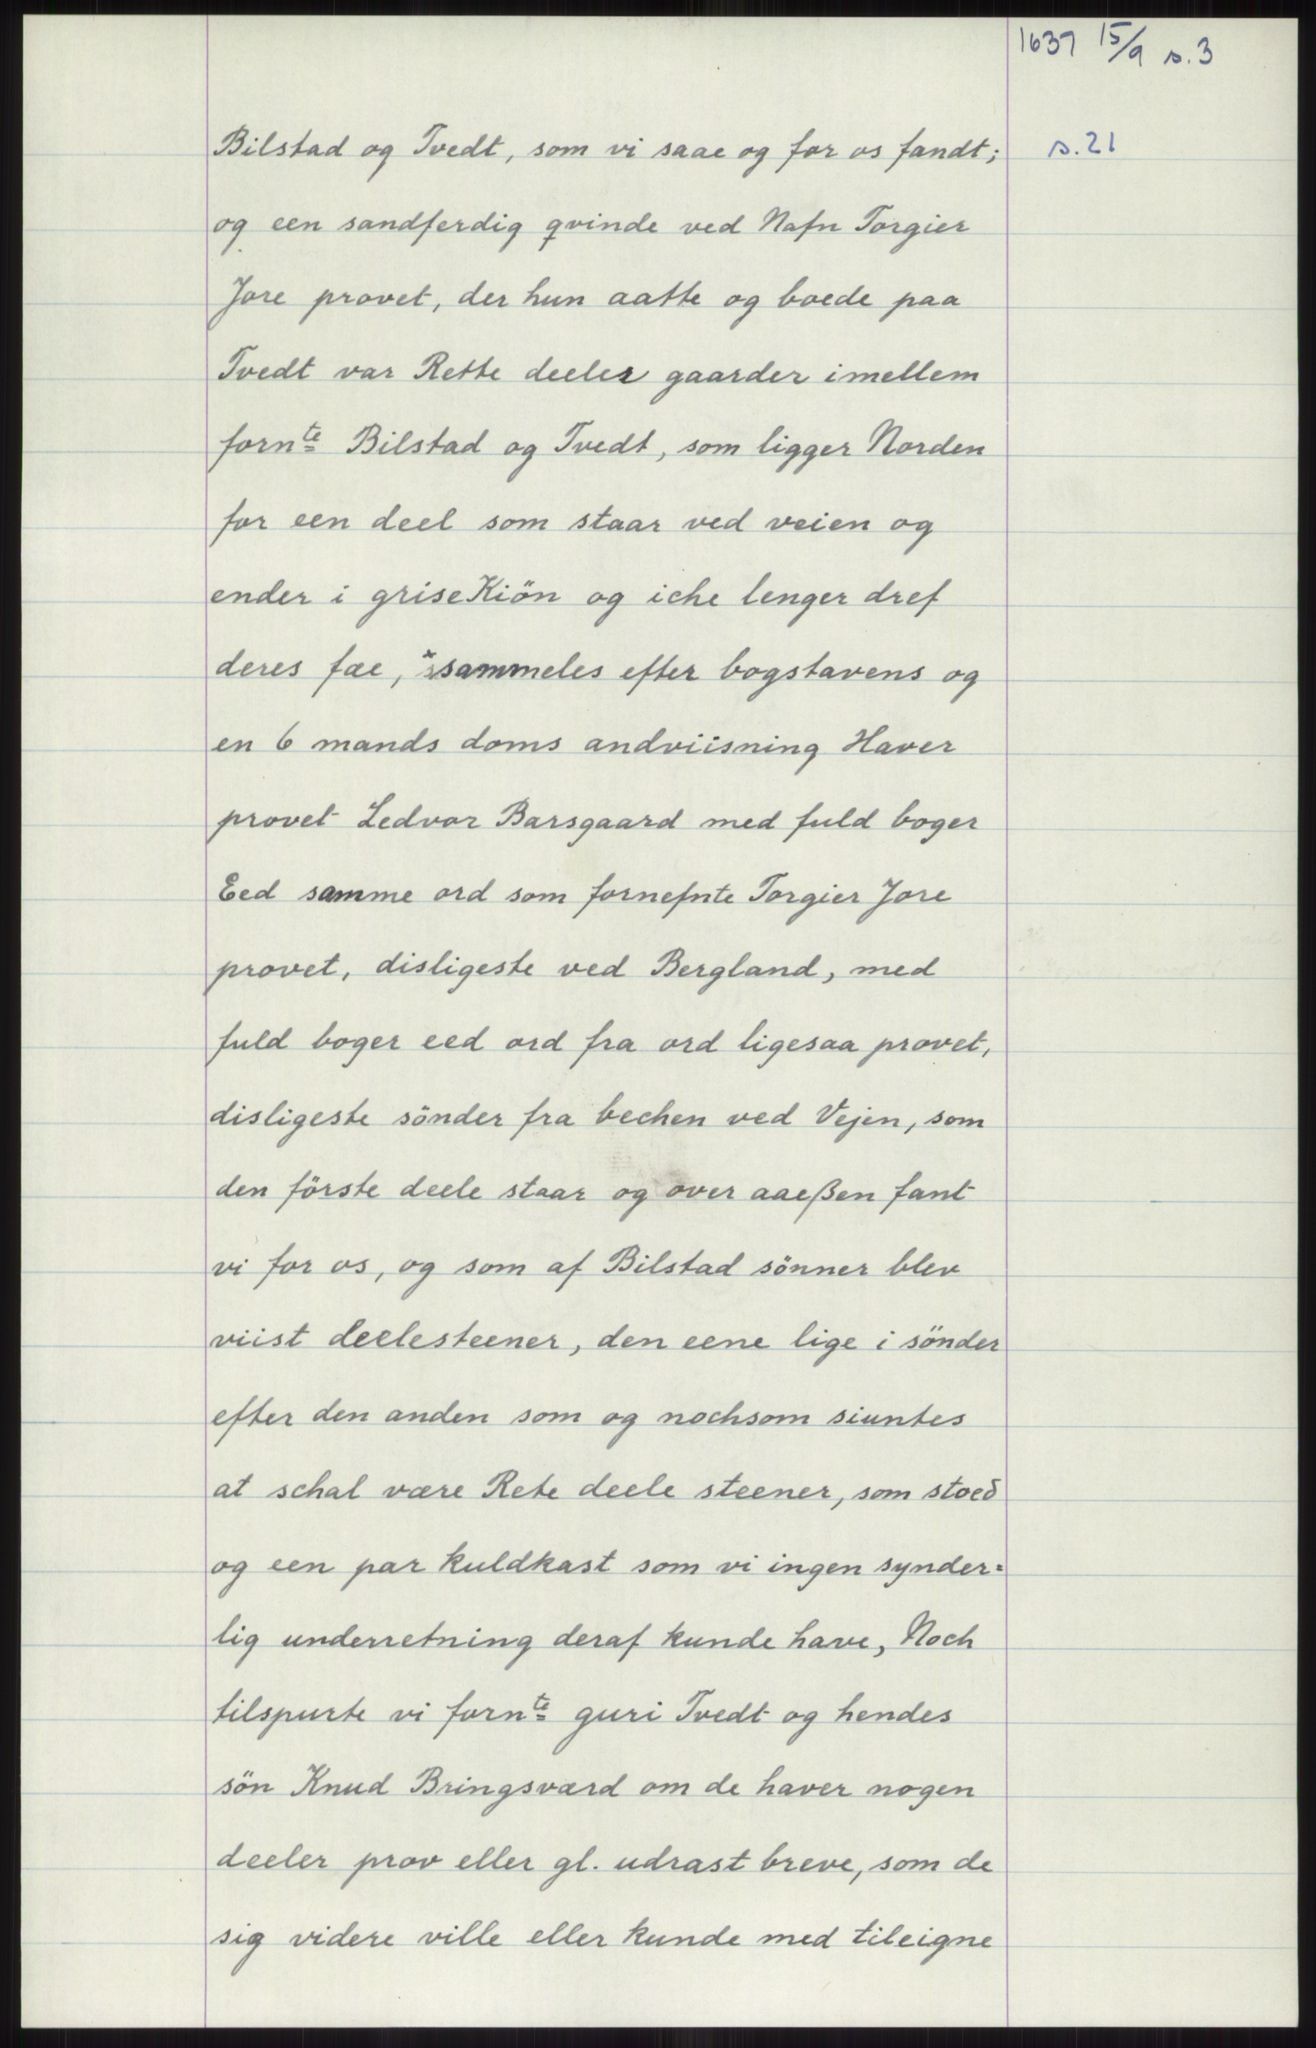 1637 15/9 s.3
Bilstad og Tvedt, som vi saae og for os fandt; s.21
og een sandferdig qvinde ved Nafn Torgier
Jore provet, der hun aatte og boede paa
Tvedt var Rette deeler gaarder imellem
fornte Bilstad og Tvedt, som ligger Norden
for een deel som staar ved veien og
ender i griseKiön og iche lenger dref
deres fæ, sammeles efter bogstavens og
en 6 mands doms andviisning Haver
provet Ledvor Barsgaard med fuld boger
Eed samme ord som fornefnte Torgier Jore
provet, disligeste ved Bergland, med
fuld boger eed ord fra ord ligesaa provet,
disligeste sönder fra bechen ved Vejen, som
den förste deele staar og over aaeßen fant
vi for os, og som af Bilstad sönner blev
viist deelesteener, den eene lige i sönder
efter den anden som og nochsom siuntes
at schal være Rete deele steener, som stoed
og een par kuldkast som vi ingen synder=
lig underretning deraf kunde have, Noch
tilspurte vi fornte guri Tvedt og hendes
sön Knud Bringsværd om de haver nogen
deeler prov eller gl. udrast breve, som de
sig videre ville eller kunde med tileigne